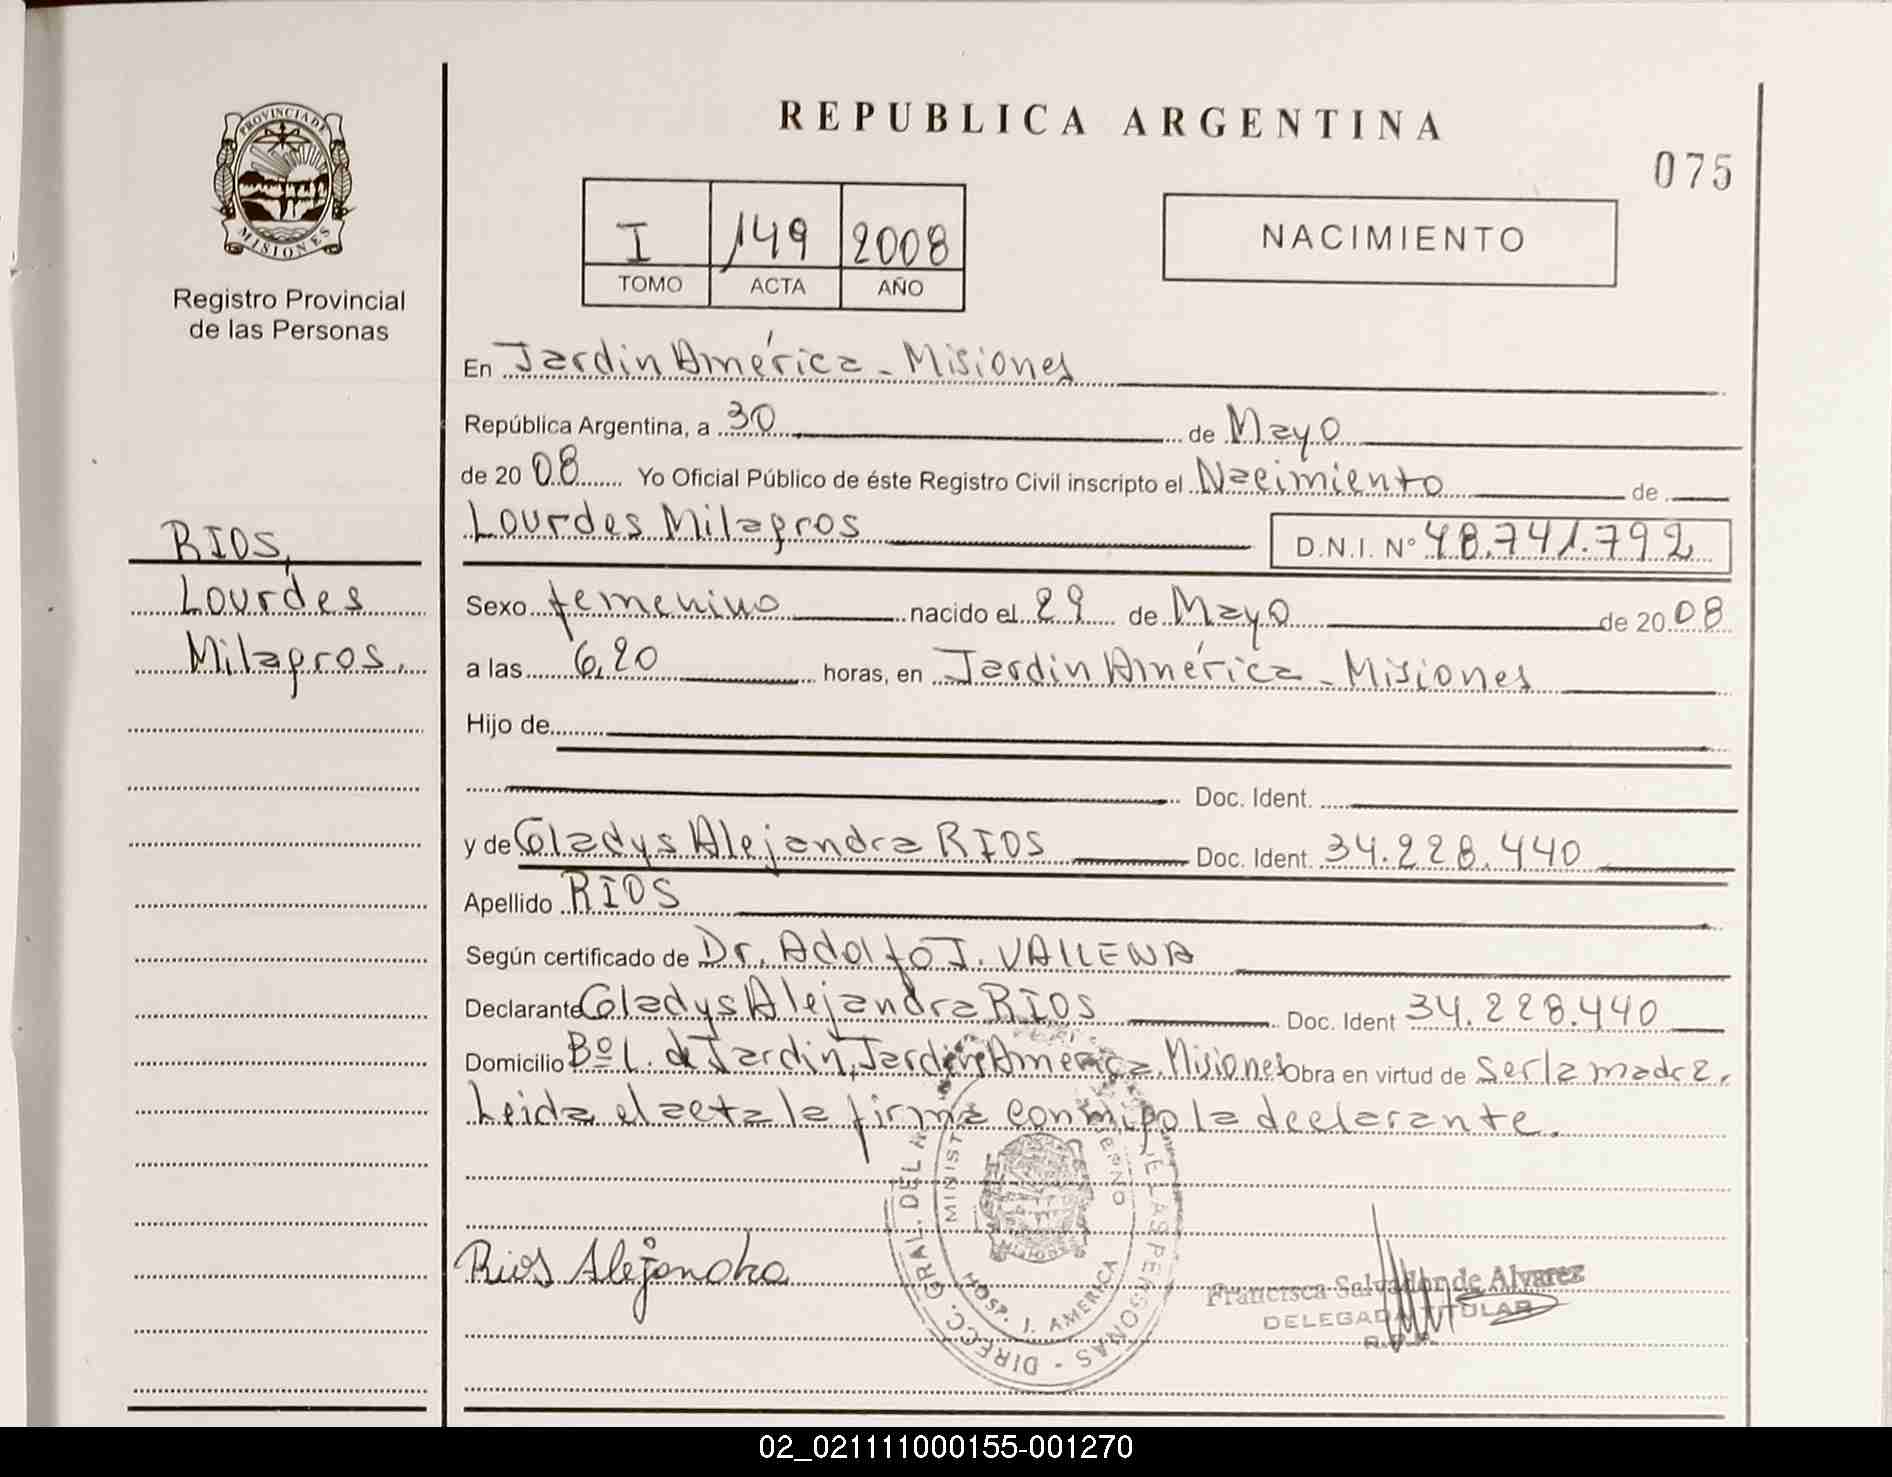 PROVINCIA DE
MISIONES
Registro Provincial
de las Personas
RIOS,
Lourdes
Milagros.
REPUBLICA ARGENTINA
075
I 149 2008
TOMO ACTA AÑO
NACIMIENTO
En Jardin América - Misiones
República Argentina, a 30 de Mayo
de 2008 Yo Oficial Público de éste Registro Civil inscripto el Nacimiento de
Lourdes Milagros D.N.I. Nº 48.741.792
Sexo femenino nacido el 29 de Mayo de 2008
a las 6,20 horas, en Jardin América - Misiones
Hijo de
Doc. Ident.
y de Gladys Alejandra RIOS Doc. Ident. 34.228.440
Apellido RIOS
Según certificado de Dr. Adolfo J. VALLENA
Declarante Gladys Alejandra RIOS Doc. Ident 34.228.440
Domicilio Bº L. de Jardin, Jardin América. Misiones Obra en virtud de ser la madre.
Leida el acta la firma conmigo la declarante.
Rios Alejandra
DIRECC. GRAL. DEL DE LAS PERSONAS
HOSP. J. AMERICA
MISIONES
Francisca Salvador de Alvarez
DELEGADA TITULAR
R.P.P.
02_021111000155-001270